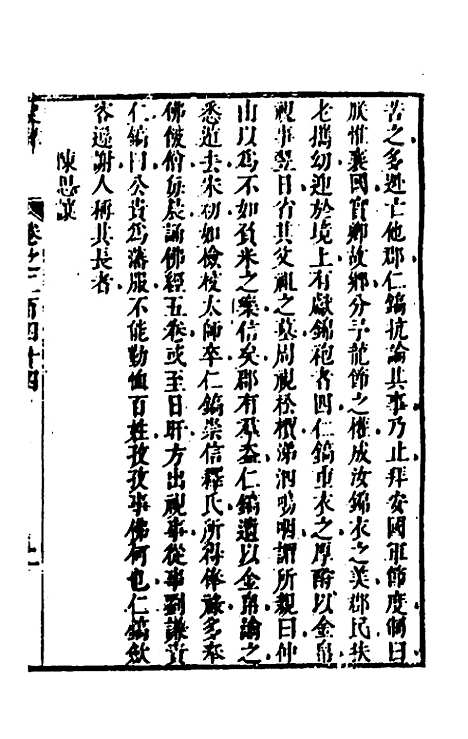 苦之多逃亡他郡仁鎬抗論其事乃止拜安國軍節度制曰
朕惟襄國實卿故鄉分予龍節之權成汝錦衣之美郡民扶
老攜幼迎於境上有獻錦袍者四仁鎬重衣之厚酹以金帛
視事翌日省其父祖之墓周視松檟涕泗嗚咽謂所親曰仲
由以爲不如負米之樂信矣郡有羣盗仁鎬遣以金帛諭之
悉遁去宋初加檢校太師卒仁鎬崇信釋氏所得俸祿多奉
佛飯僧每晨誦佛經五卷或至日旰方出視事從事劉謙責
仁鎬曰公貴爲藩服不能勤恤百姓孜孜事佛何也仁鎬斂
容遜謝人稱其長者
陳思讓
卷之二百四十四